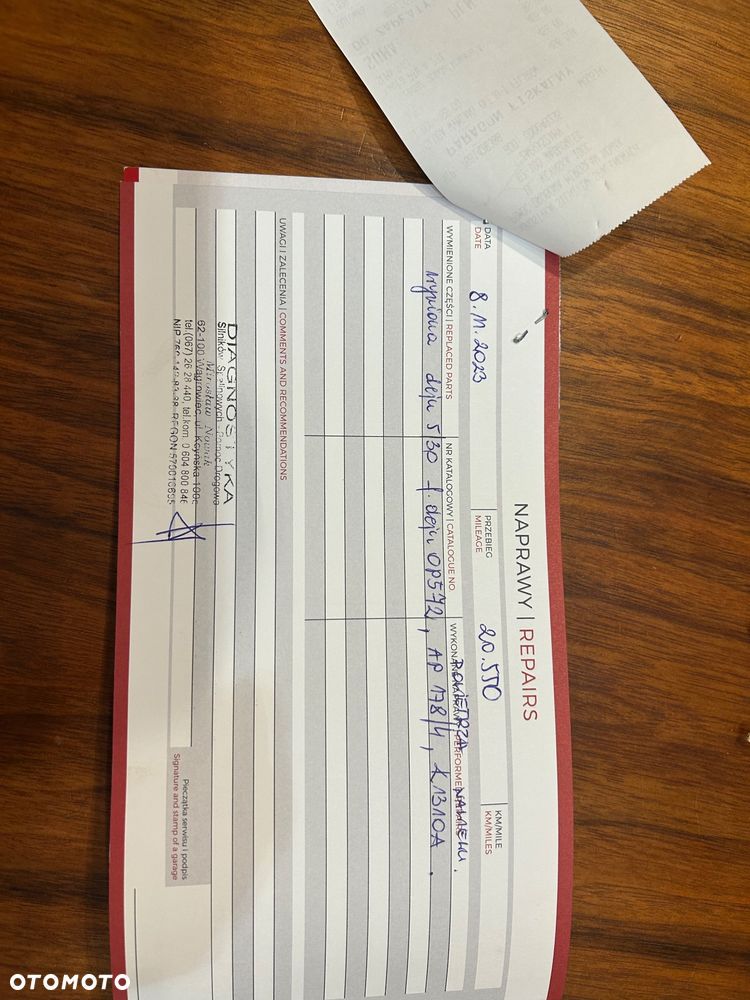 NAPRAWY | REPAIRS
DATA
DATE
8.11.2023
PRZEBIEG
MILEAGE
20.550
KM/MILE
KM/MILES
WYMIENIONE CZĘŚCI | REPLACED PARTS
NR KATALOGOWY | CATALOGUE NO.
POWIETRZA
wymiana oleju 5/30 f. oleju OP572, AP 178/4, K1310A.
UWAGI I ZALECENIA | COMMENTS AND RECOMMENDATIONS
DIAGNOSTYKA
Silników Spalinowych - Pomoc Drogowa
Mirosław Nowak
62-100 Wągrowiec, ul. Kcyńska 100c
tel.(067) 26 28 440, tel.kom. 0 604 800 846
Pieczątka serwisu i podpis
Signature and stamp of a garage
PARAGON FISKALNY
OTOMOTO